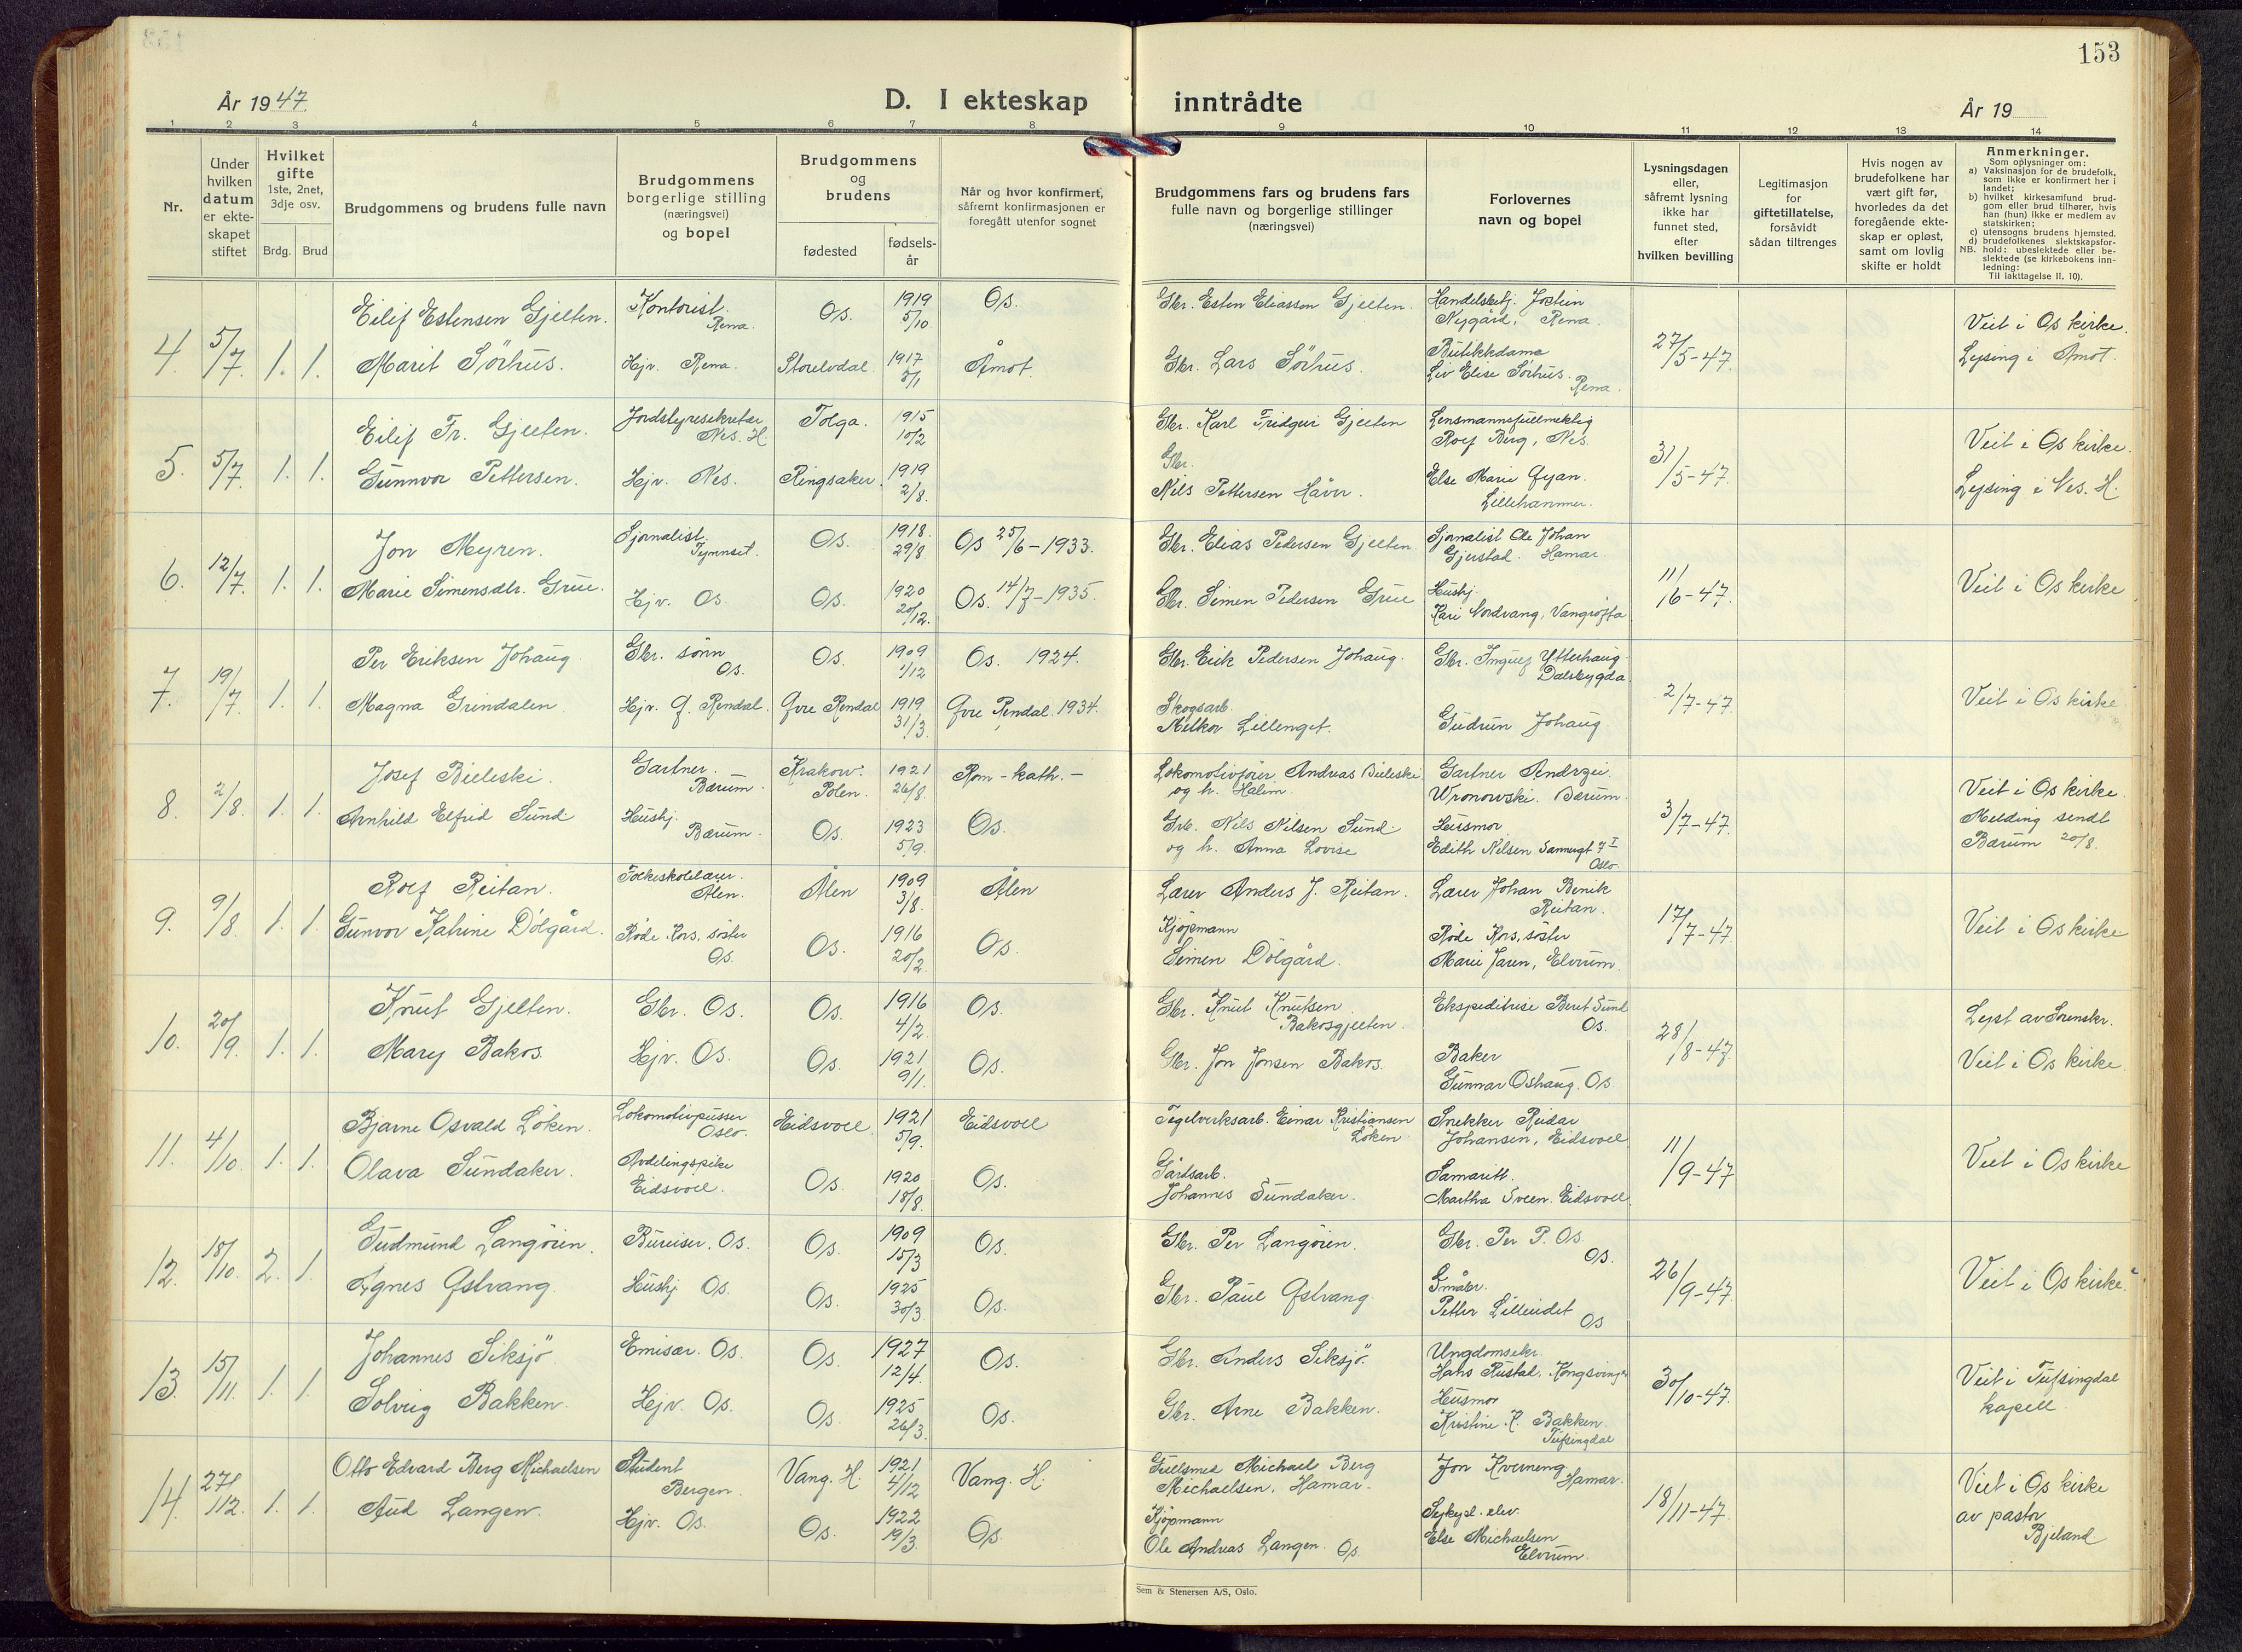 153
År 1947
D. I ekteskap inntrådte
År 19
1 2 3 4 5 6 7 8 9 10 11 12 13 14
Nr.
Under hvilken datum er ekteskapet stiftet
Hvilket gifte 1ste, 2net, 3dje osv.
Brdg. Brud
Brudgommens og brudens fulle navn
Brudgommens borgerlige stilling (næringsvei) og bopel
Brudgommens og brudens
fødested
fødselsår
Når og hvor konfirmert, såfremt konfirmasjonen er foregått utenfor sognet
Brudgommens fars og brudens fars fulle navn og borgerlige stillinger (næringsvei)
Forlovernes navn og bopel
Lysningsdagen eller, såfremt lysning ikke har funnet sted, efter hvilken bevilling
Legitimasjon for giftetillatelse, forsåvidt sådan tiltrenges
Hvis nogen av brudefolkene har vært gift før, hvorledes da det foregående ekteskap er opløst, samt om lovlig skifte er holdt
Anmerkninger.
Som oplysninger om:
a) Vaksinasjon for de brudefolk, som ikke er konfirmert her i landet;
b) hvilket kirkesamfund brudgom eller brud tilhører, hvis han (hun) ikke er medlem av statskirken;
c) utensogns brudens hjemsted.
d) brudefolkenes slektskapsforhold: ubeslektede eller beslektede (se kirkebokens innledning:
NB.
Til iakttagelse II. 10).
4. 5/7. 1. 1.
Eilif Estensen Gjelten. Kontorist. Rena. Os. 1919 5/10 Os. Gbr. Esten Eliassen Gjelten. Handelsbetj. Jostein Nygård, Rena.
Marit Sörhus. Hjv. Rena. Storelvdal. 1917 5/1 Åmot. Gbr. Lars Sörhus. Butikkdame Liv Elise Sörhus. Rena.
27/5-47. Viet i Os kirke. Lysing i Åmot.
5. 5/7. 1. 1.
Eilif Fr. Gjelten. Jordstyresekretær Nes. H. Tolga. 1915 10/2 Gbr. Karl Fridguv Gjelten Lensmannsfullmektig Rolf Berg, Nes.
Gunnvor Pettersen. Hjv. Nes. Ringsaker. 1919 2/8. Gbr. Nils Pettersen Håver. Else Marie Øyan. Lillehammer.
31/5-47. Viet i Os kirke. Lysing i Nes. H.
6. 12/7. 1. 1.
Jon Myren. Sjornalist. Tynnset. Os. 1918. 29/8 Os 25/6-1933. Gbr. Elias Pedersen Gjelten. Sjornalist Ole Johan Gjerstad. Hamar.
Marie Simensdtr. Grue. Hjv. Os. Os. 1920 20/12. Os. 14/7-1935. Gbr. Simen Pedersen Grue Hushj. Kari Nordvang, Vangröfta
11/6-47. Viet i Os kirke
7. 19/7. 1. 1.
Per Eriksen Johaug Gbr. sönn Os. Os. 1909 1/12 Os. 1924. Gbr. Erik Pedersen Johaug. Gbr. Ingulf Ytterhaug. Dalsbygda.
Magna Grindalen. Hjv. Ø. Rendal. Øvre Rendal 1919 31/3. Øvre Rendal. 1934. Skogsarb. Melkor Lillenget. Gudrun Johaug
2/7-47. Viet i Os kirke
8. 2/8. 1. 1.
Josef Bieleski. Gartner. Bærum. Krakow. Polen. 1921 26/8. Rom-kath.- Lokomotivförer Andreas Bieleski og h. Halim. Gartner Andrzei. Wronowski. Bærum.
Arnhild Elfrid Sund. Hushj. Bærum. Os. 1923 5/9. Os. Grb. Nils Nilsen Sund. og h. Anna Lovise Husmor Edith Nilsen Oslo.
3/7-47. Viet i Os kirke. Melding sendt Bærum 20/8.
9. 9/8. 1. 1.
Rolf Reitan. Folkeskolelærer. Ålen. Ålen 1909 3/8. Ålen Lærer Anders J. Reitan. Lærer Johan Benik Reitan.
Gunvor Katrine Dölgård. Röde Kors, söster Os. Os. 1916 20/2. Os. Kjöpmann Simen Dölgård. Röde Kors, söster Marie Jaren, Elverum.
17/7-47. Viet i Os kirke
10. 20/9. 1. 1.
Knut Gjelten. Gbr. Os. Os. 1916 4/2. Os. Gbr. Knut Knutsen Bakosgjelten. Ekspeditrise Berit Sund Os.
Mary Bakos. Hjv. Os. Os. 1921 9/1. Os. Gbr. Jon Jonsen Bakos. Baker Gunnar Oshaug. Os.
28/8-47. Lyst av Sorenskr. Viet i Os kirke.
11. 4/10. 1. 1.
Bjarne Osvald Löken. Lokomotivpusser Oslo. Eidsvoll. 1921 5/9. Eidsvoll Tegelverksarb. Einar Kristiansen Löken. Snekker Reidar Johansen, Eidsvoll
Olava Sundaker. Avdelingspike Eidsvoll. Os. 1920 18/8. Os. Gårdsarb. Johannes Sundaker. Samaritt. Martha Sveen. Eidsvoll.
11/9-47 Viet i Os kirke
12. 18/10. 2. 1.
Gudmund Langöien. Bureiser. Os. Os. 1909 15/3 Os. Gbr. Per Langöien. Gbr. Per P. Os. Os.
Agnes Østvang. Hushj. Os. Os. 1925 30/3. Os. Gbr. Paul Østvang. Småbr. Petter Lilleeidet Os
26/9-47. Viet i Os kirke.
13. 15/11. 1. 1.
Johannes Siksjö. Emisær. Os. Os. 1927 12/4. Os. Gbr. Anders Siksjö. Ungdomsekr. Hans Rustad, Kongsvinger
Solveig Bakken. Hjv. Os. Os. 1925 26/3. Os. Gbr. Arne Bakken. Husmor Kristine K. Bakken. Tufsingdal
30/10-47. Viet i Tufsingdal kapell.
14. 27/12. 1. 1.
Otto Edvard Berg Michaelsen Student Bergen. Vang. H. 1921 4/12 Vang. H. Gullsmed Michael Berg Michaelsen, Hamar. Jon Kverneng Hamar.
Aud Langen. Hjv. Os. Os. 1922 19/3. Os. Kjöpmann Ole Andreas Langen. Os. Sykepl. elev. Else Michaelsen Elverum.
18/11-47. Viet i Os kirke av pastor Bjeland.
Sem & Stenersen A/S, Oslo.